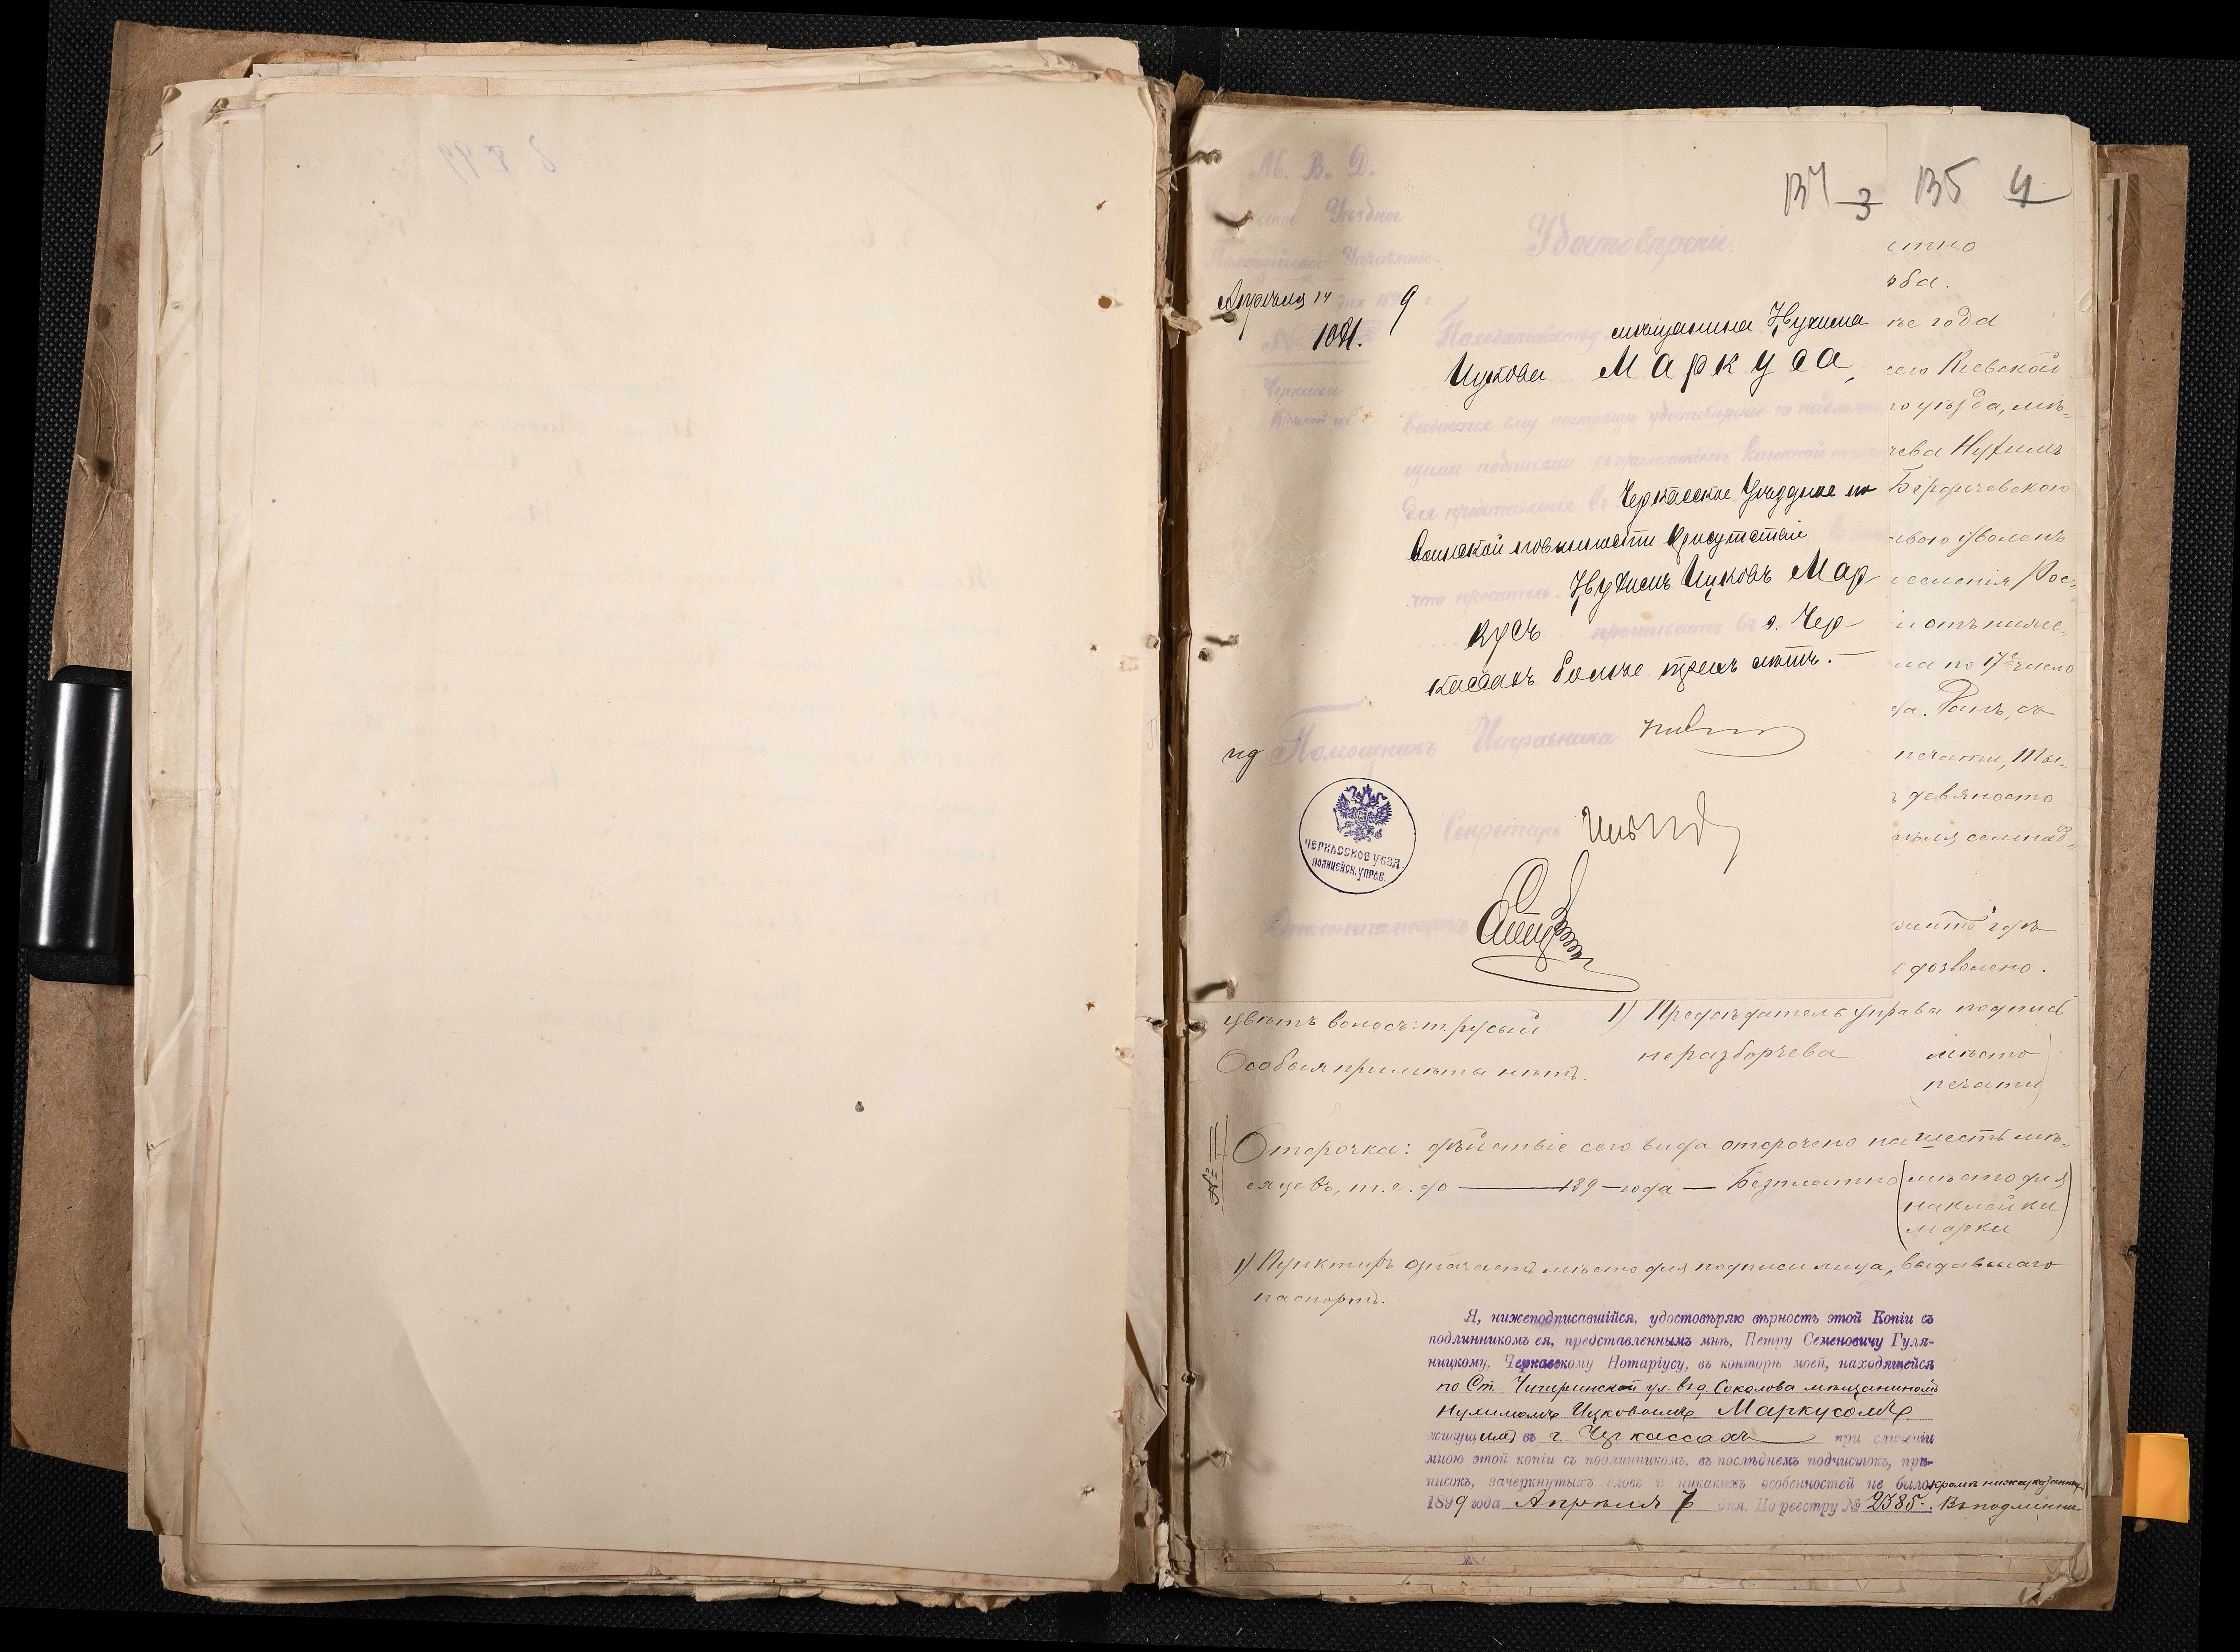 134 3 135 4
М. В. Д.
Уѣздное
Полицейское Управленіе.
Апрѣля 14 дня 1899 г.
№ 1081.
Черкассы
Кіевской губ.
Удостовѣреніе.
мѣщанина Нухима
Ицкова Маркуса,
выдается ему настоящее удостовѣреніе за надлежа
щими подписями съ приложеніемъ казенной печати
для представленія въ Черкасское Уѣздное по
воинской повинности Присутствіе
что проситель Нухимъ Ицковъ Мар
кусъ проживаетъ въ г. Чер-
кассахъ болѣе трехъ лѣтъ.—
ид Помощникъ Исправника
Секретарь
ЧЕРКАССКОЕ УѢЗД.
ПОЛИЦЕЙСК. УПРАВ.
тно
ьба.
ге года
сего Кіевской
го уѣзда, мѣ-
чева Нухимъ
Бердичевского
уволенъ
селенія Рос-
и отъ ниже-
ла по 17е число
да. Данъ, съ
печати, ты-
ъ девяносто
рѣля семнад-
дозволено.
цвѣтъ волосъ: т. русый
Особыя примѣты нѣтъ.
1) Предсѣдатель управы подпись
неразборчева (мѣсто
печати)
Отсрочка: дѣйствіе сего вида отсрочено на шесть мѣ-
сяцевъ, т. е. до — 189 — года — Безплатно (мѣсто для
наклейки
марки)
1) Пунктиръ означаетъ мѣсто для подписи лица, выдавшаго
паспортъ.
Я, нижеподписавшійся, удостовѣряю вѣрность этой Копіи съ
подлинникомъ ея, представленнымъ мнѣ, Петру Семеновичу Гуля-
ницкому, Черкасскому Нотаріусу, въ конторѣ моей, находящейся
по Ст. Чигиринской ул. въ д. Соколова мѣщаниномъ
Нухимомъ Ицковымъ Маркусомъ
живущимъ въ г. Черкассахъ при сличеніи
мною этой копіи съ подлинникомъ, въ послѣднемъ подчистокъ, при-
писокъ, зачеркнутыхъ словъ и никакихъ особенностей не было кромѣ нижеуказанных
1899 года Апрѣля 7 дня. По реестру № 2385. Въ подлинни-